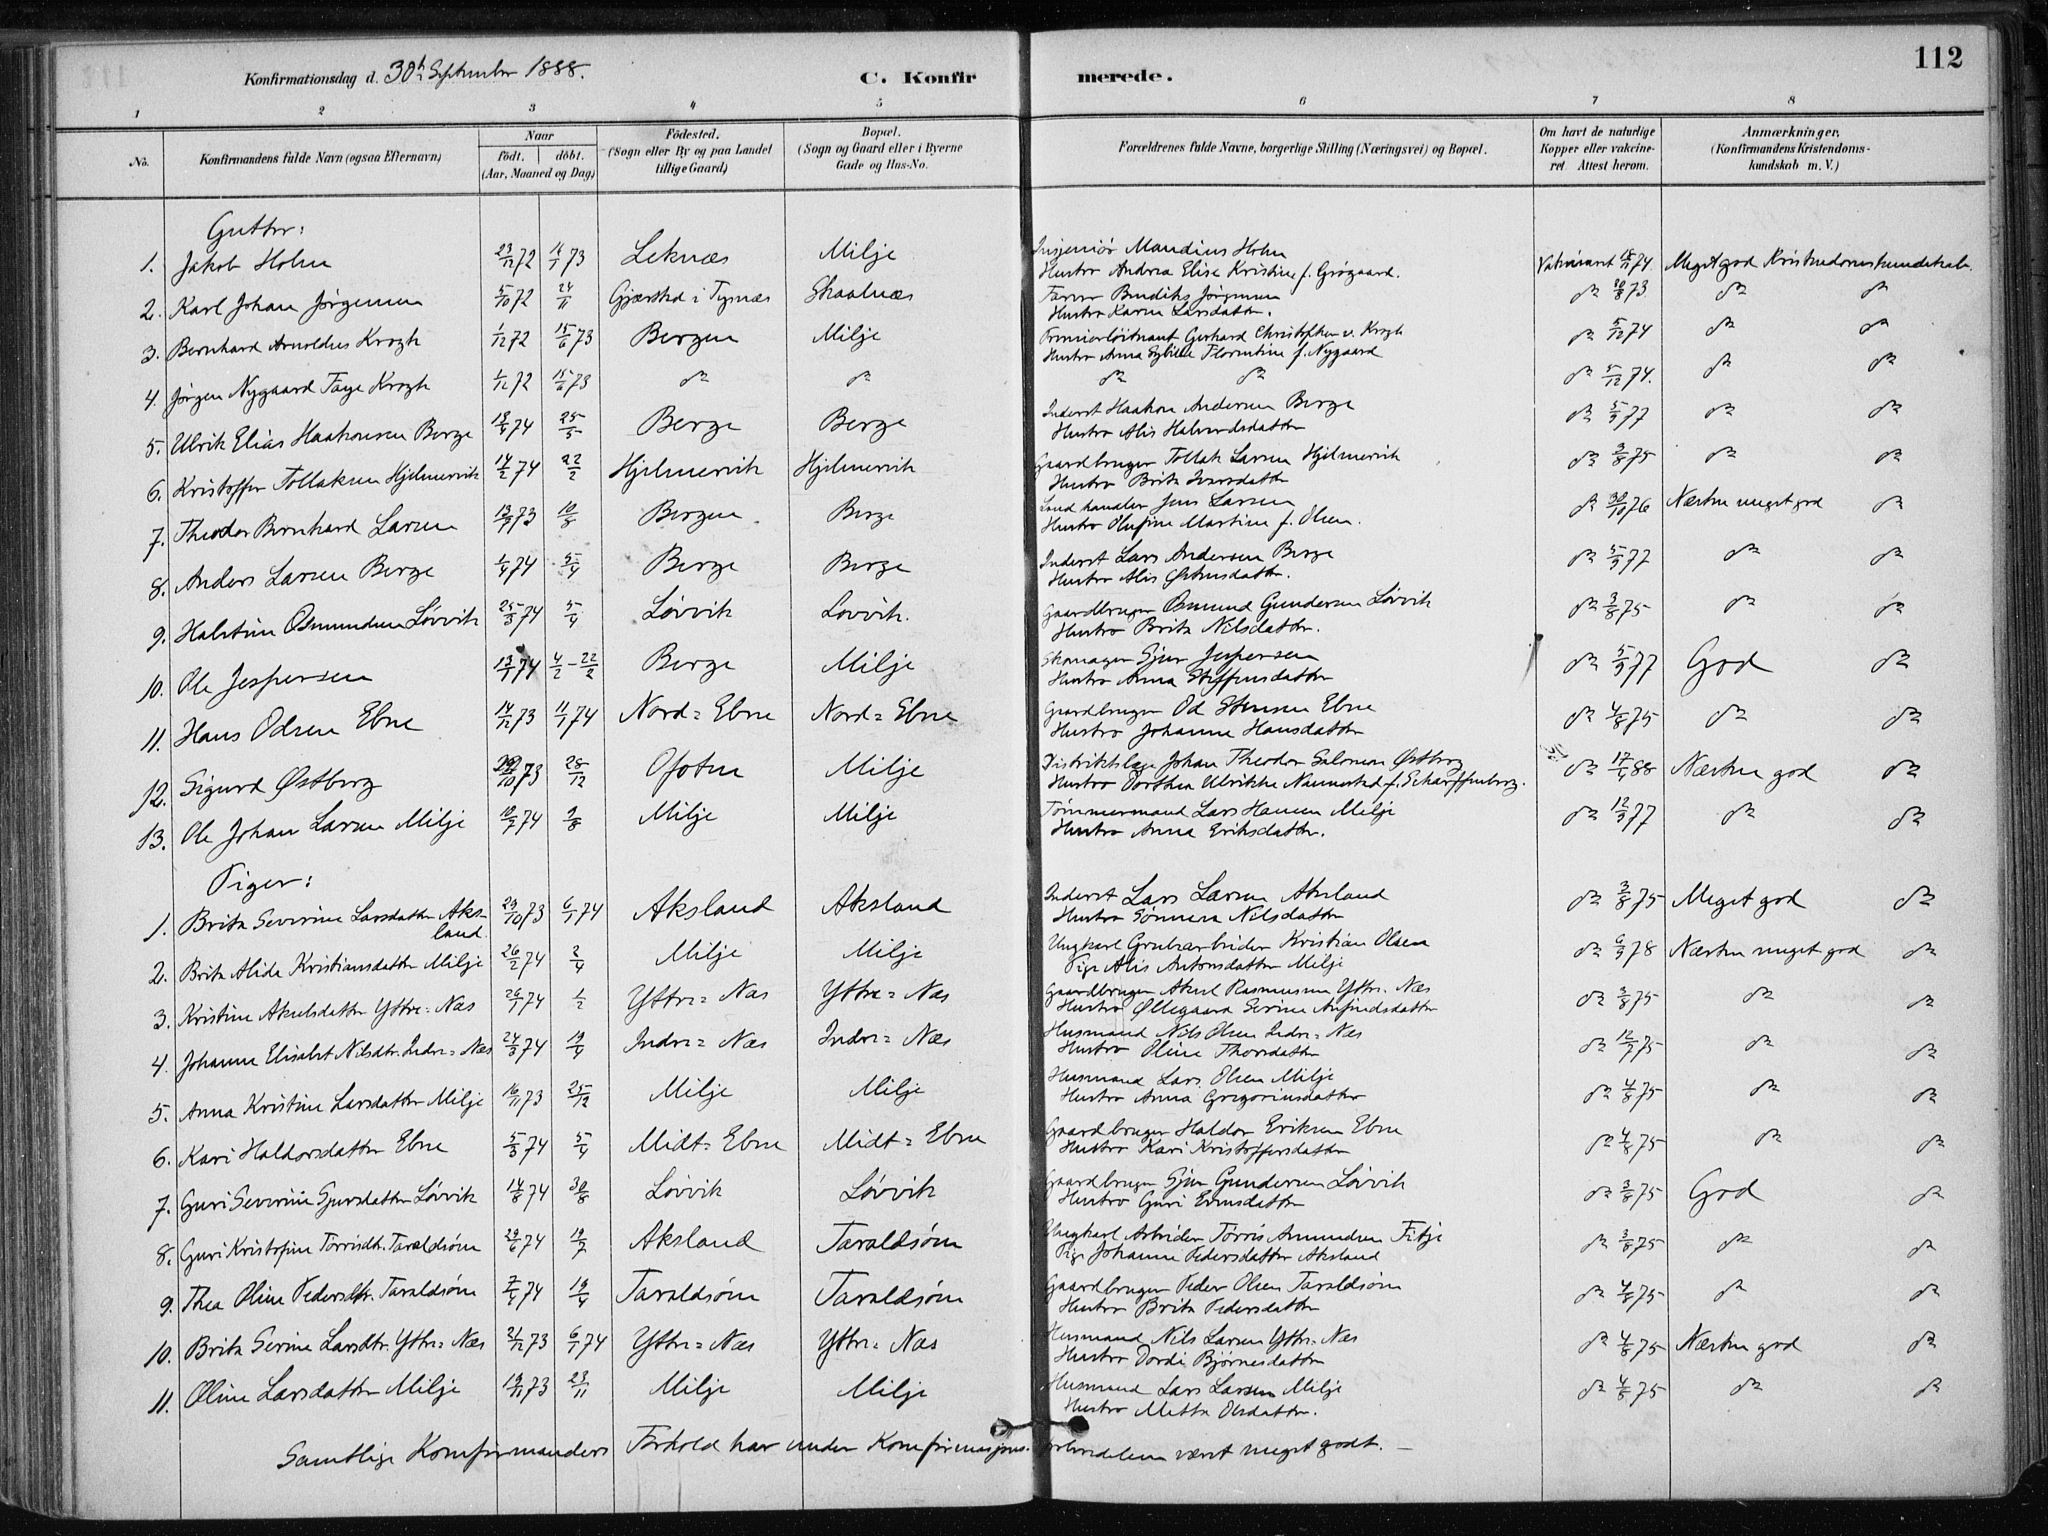 112
Konfirmationsdag d. 30te September 1888.
C. Konfirmerede.
1 2 3 4 5 6 7 8
No. Konfirmandens fulde Navn (ogsaa Efternavn) Naar födt. döbt. (Aar, Maaned og Dag.) Födested. (Sogn eller By og paa Landet tillige Gaard.) Bopæl. (Sogn og Gaard eller i Byerne Gade og Hus-No. Forældrenes fulde Navne, borgerlige Stilling (Næringsvei) og Bopæl. Om havt de naturlige Kopper eller vakcineret. Attest herom. Anmærkninger. (Konfirmandens Kristendomskundskab m. V.)
Gutter:
1. Jakob Holm 23/12 72 11/1 73 Leknæs Milje Ingeniør Mandius Holm
Hustro Andrea Elise Kristine f. Grøgaard. 74 Meget god Kristendomskundskab
2. Karl Johan Jørgensen 5/10 72 24/11 Gjærstad i Tysnæs Skaalnæs Farver Bendiks Jørgensen
Hustro Karen Larsdatter. do 30/8 73 do do
3. Bernhard Arnoldus Krogh 1/12 72 15/6 73 Bergen Milje Premierløitnant Gerhard Christopher v. Krogh
Hustro Anna Sybille Florentine f. Nygaard do 5/12 74 do do
4. Jørgen Nygaard Faye Krogh 1/12 72 15/6 73 do do do do do 5/12 74. do do
5. Ulrik Elias Haakonsen Berge 74 25/5 Berge Berge Inderst Haakon Andersen Berge
Hustro Alis Halvordsdatter do 5/9 77 do do
6. Kristoffer Tollaksen Hjelmervik 14/2 74 22/2 Hjelmervik Hjelmervik Gaardbruger Tollak Larsen Hjelmervik
Hustro Brita Ivarsdatter do 3/8 75 do do
7. Theodor Bernhard Larsen 73 10/8 Bergen Berge Landhandler Jens Larsen
Hustro Olufine Martine f. Olsen. do 30/10 76 Næsten meget god do
8. Anders Larsen Berge 1/4 74 5/4 Berge Berge Inderst Lars Andersen Berge
Hustro Alis Østensdatter. do 5/9 77 do do
9. Halstein Osmundsen Løvvik 25/3 74 5/4 Løvvik Løvvik. Gaardbruger Osmund Gundersen Løvvik
Hustro Brita Nilsdatter. do 3/8 75 do do
10. Ole Jespersen 13/1 74 4/2 - 22/2 Berge Milje Skomager Sjur Jespersen
Hustro Anna Steffensdatter do 5/9 77 God do
11. Hans Odsen Ebne 14/12 73 11/1 74 Nord=Ebne Nord=Ebne Gaardbruger Od Stensen Ebne
Hustro Johanne Hansdatter do 4/8 75 do do
12. Sigurd Østberg 73 28/12 Ofoten Milje Distriktslæge Johan Theodor Salomon Østberg
Hustro Dorthea Ulrikke Nannestad f. Scharffenberg. do 17/4 88 Næsten god do
13. Ole Johan Larsen Milje 10/7 74 9/8 Milje Milje Tømmermand Lars Hansen Milje
Hustro Anna Eriksdatter. do 12/9 77 do do
Piger:
1. Brita Severine Larsdatter Aksland 29/10 73 6/1 74 Aksland Aksland Inderst Lars Larsen Aksland
Hustro Sønneva Nilsdatter do 3/8 75 Meget god do
2. Brita Alida Kristiansdatter Milje 26/2 74 2/4 Milje Milje Ungkarl Grubearbeider Kristian Olsen
Pige Alis Antonsdatter Milje do 6/9 78 Næsten meget god do
3. Kristine Akselsdatter Yttre=Næs 26/1 74 1/2 Yttre=Næs Yttre=Næs Gaardbruger Aksel Rasmussen Yttre-Næs
Hustro Øllegaard Serine Arnfindsdatter do 3/8 75 do do
4. Johanne Elisabet Nilsdtr. Indre=Næs 24/3 74 19/4 Indre=Næs Indre=Næs Husmand Nils Olsen Indre=Næs
Hustro Oline Thorsdatter do 12/7 75 do do
5. Anna Kristine Larsdatter Milje 16/11 73 25/12 Milje Milje Husmand Lars Olsen Milje
Hustro Anna Gregoriusdatter do 4/8 75 do do
6. Kari Haldorsdatter Ebne 5/3 74 5/4 Midt=Ebne Midt=Ebne Gaardbruger Haldor Eriksen Ebne
Hustro Kari Kristoffersdatter do 4/8 75 do do
7. Guri Severine Sjursdatter Løvvik 14/8 74 30/8 Løvvik Løvvik Gaardbruger Sjur Gundersen Løvvik
Hustro Guri Evensdatter do 3/8 75 God do
8. Guri Kristofine Tørrisdtr. Taraldsøen 29/6 74 19/7 Aksland Taraldsøen Ungkarl Arbeider Tørris Amundsen Fitje
Pige Johanne Pedersdatter Aksland do 3/8 75 do do
9. Thea Oline Pedersdtr. Taraldsøen 7/4 74 19/4 Taraldsøen Taraldsøen Gaardbruger Peder Olsen Taraldsøen
Hustro Brita Pedersdatter do 4/8 75 do do
10. Brita Serine Larsdtr. Yttre=Næs 21/12 73 6/1 74 Yttre=Næs Yttre=Næs Husmand Nils Larsen Yttre-Næs
Hustro Dordi Bjørnesdatter do 4/8 75 Næsten god do
11. Oline Larsdatter Milje 19/11 73 23/11 Milje Milje Husmand Lars Larsen Milje
Hustro Metta Olsdatter. do 4/8 75 do do
Samtlige Konfirmanders Forhold har under Konfirmasjonsforberedelsen været meget godt. —